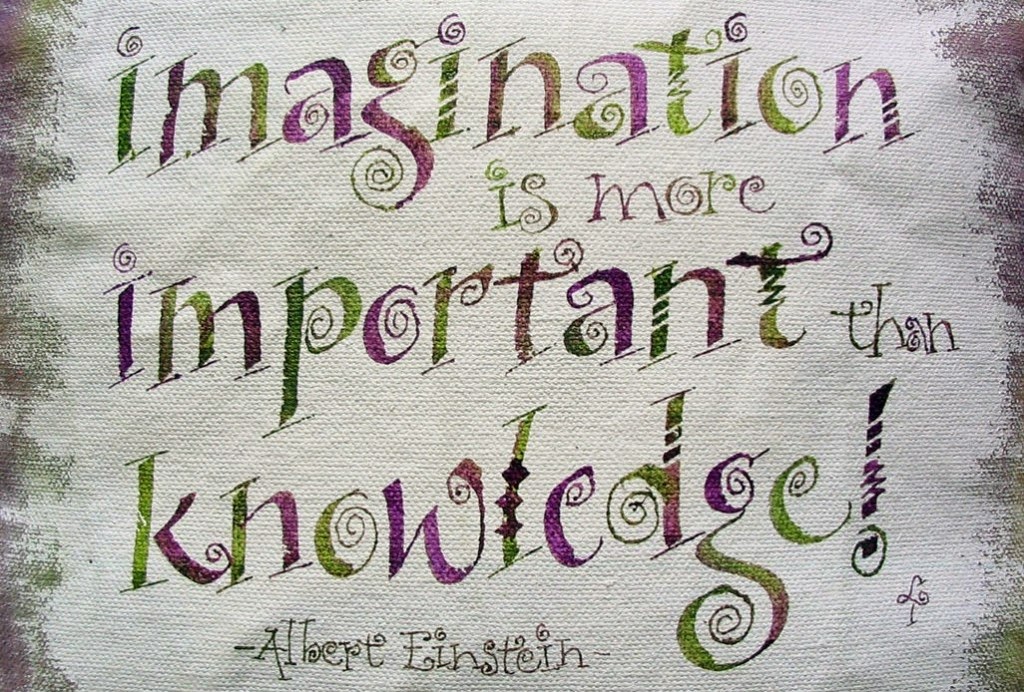 imagination
is more
important than
knowledge!
-Albert Einstein-